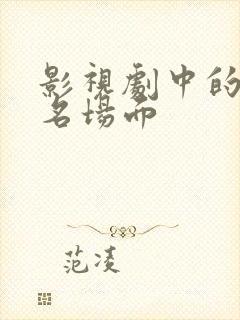 影視劇中的
名場面
范凌